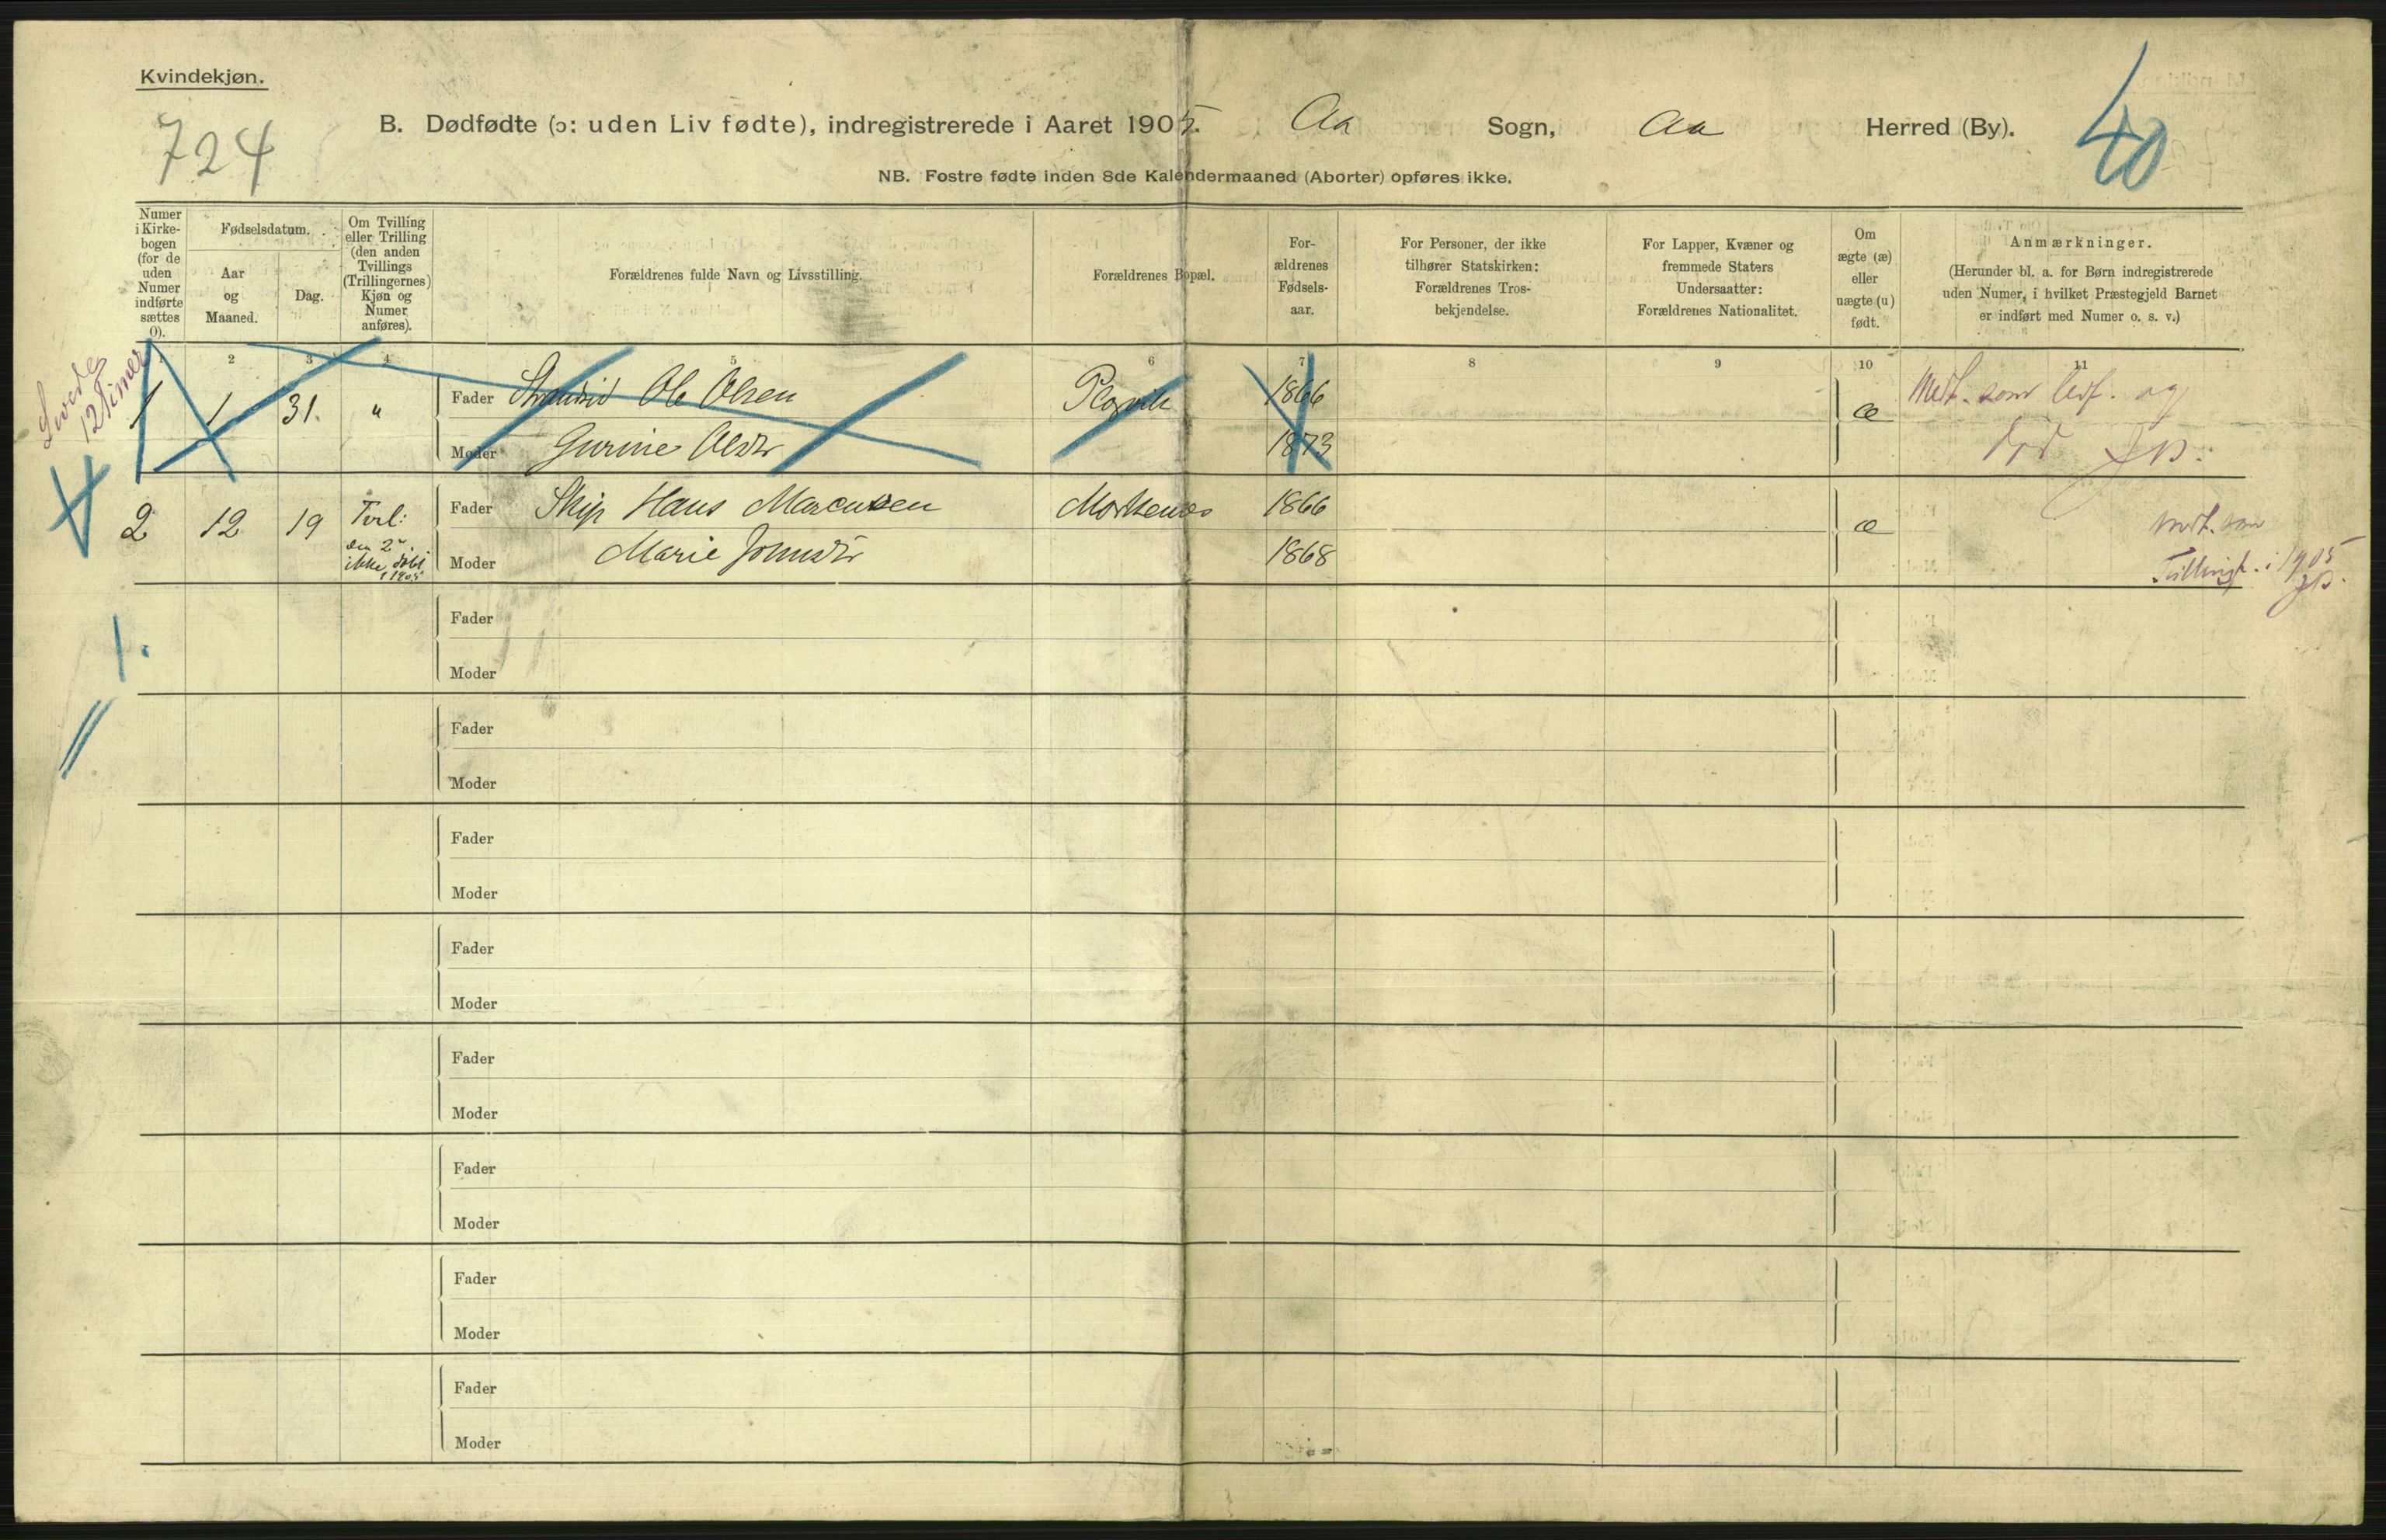 Kvindekjøn.
724
B. Dødfødte (ɔ: uden Liv fødte), indregistrerede i Aaret 1905. Aa Sogn, Aa Herred (By).
40
NB. Fostre fødte inden 8de Kalendermaaned (Aborter) opføres ikke.
Numer
i Kirke-
bogen
(for de
uden
Numer
indførte
sættes
0).
Fødselsdatum.
Aar
og
Maaned.
Dag.
Om Tvilling
eller Trilling
(den anden
Tvillings
(Trillingernes)
Kjøn og
Numer
anføres).
Forældrenes fulde Navn og Livsstilling.
Forældrenes Bopæl.
For-
ældrenes
Fødsels-
aar.
For Personer, der ikke
tilhører Statskirken:
Forældrenes Tros-
bekjendelse.
For Lapper, Kvæner og
fremmede Staters
Undersaatter:
Forældrenes Nationalitet.
Om
ægte (æ)
eller
uægte (u)
født.
Anmærkninger.
(Herunder bl. a. for Børn indregistrerede
uden Numer, i hvilket Præstegjeld Barnet
er indført med Numer o. s. v.)
1 2 3 4 5 6 7 8 9 10 11
Levede
12 Timer
1 1 31. " Fader Ole Olsen 1866 æ
Moder Gurine Olsdtr 1873
Medt. som levf. og
død
2 12 19 Tvil: Fader Skip Hans Marcussen 1866 æ
den 2
ikke
1905
Moder Marie Johnsdtr 1868
medt. som
Tvillingf. i 1905
1.
Fader
Moder
Fader
Moder
Fader
Moder
Fader
Moder
Fader
Moder
Fader
Moder
Fader
Moder
Fader
Moder